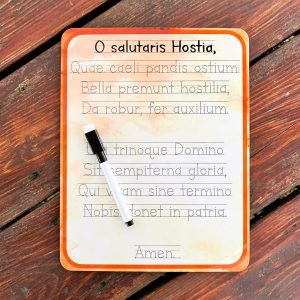 O salutaris Hostia,
Quae caeli pandis ostium
Bella premunt hostilia,
Da robur, fer auxilium.
trinoque Domino
Sit sempiterna gloria,
Qui sine termino
Nobis donet in patria.
Amen.